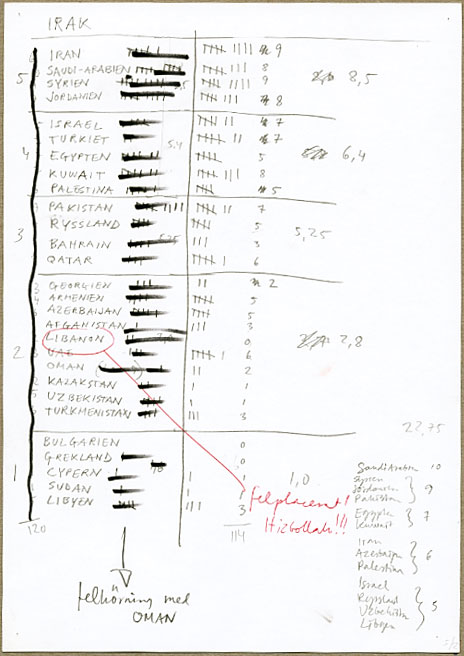 IRAK
5
IRAN 9
SAUDI-ARABIEN 8
SYRIEN 9
JORDANIEN 8
8,5
4
ISRAEL 7
TURKIET 7
EGYPTEN 5
KUWAIT 8
PALESTINA 5
6,4
3
PAKISTAN 7
RYSSLAND 5
BAHRAIN 3
QATAR 6
5,25
2
GEORGIEN 2
ARMENIEN 5
AZERBAIJAN 5
AFGANISTAN 3
LIBANON 0
UAE 6
OMAN 2
KAZAKSTAN 1
UZBEKISTAN 1
TURKMENISTAN 3
2,8
22,75
1
BULGARIEN 0
GREKLAND 0
CYPERN 1
SUDAN 1
LIBYEN 3
1,0
120
114
Felplacerat!
Hizbollah!!!
felkörning med
OMAN
Saudi Arabien 10
Syrien
Jordanien
Pakistan
9
Egypten
Kuwait
7
Iran
Azerbaijan
Palestina
6
Israel
Ryssland
Uzbekistan
Libyen
5